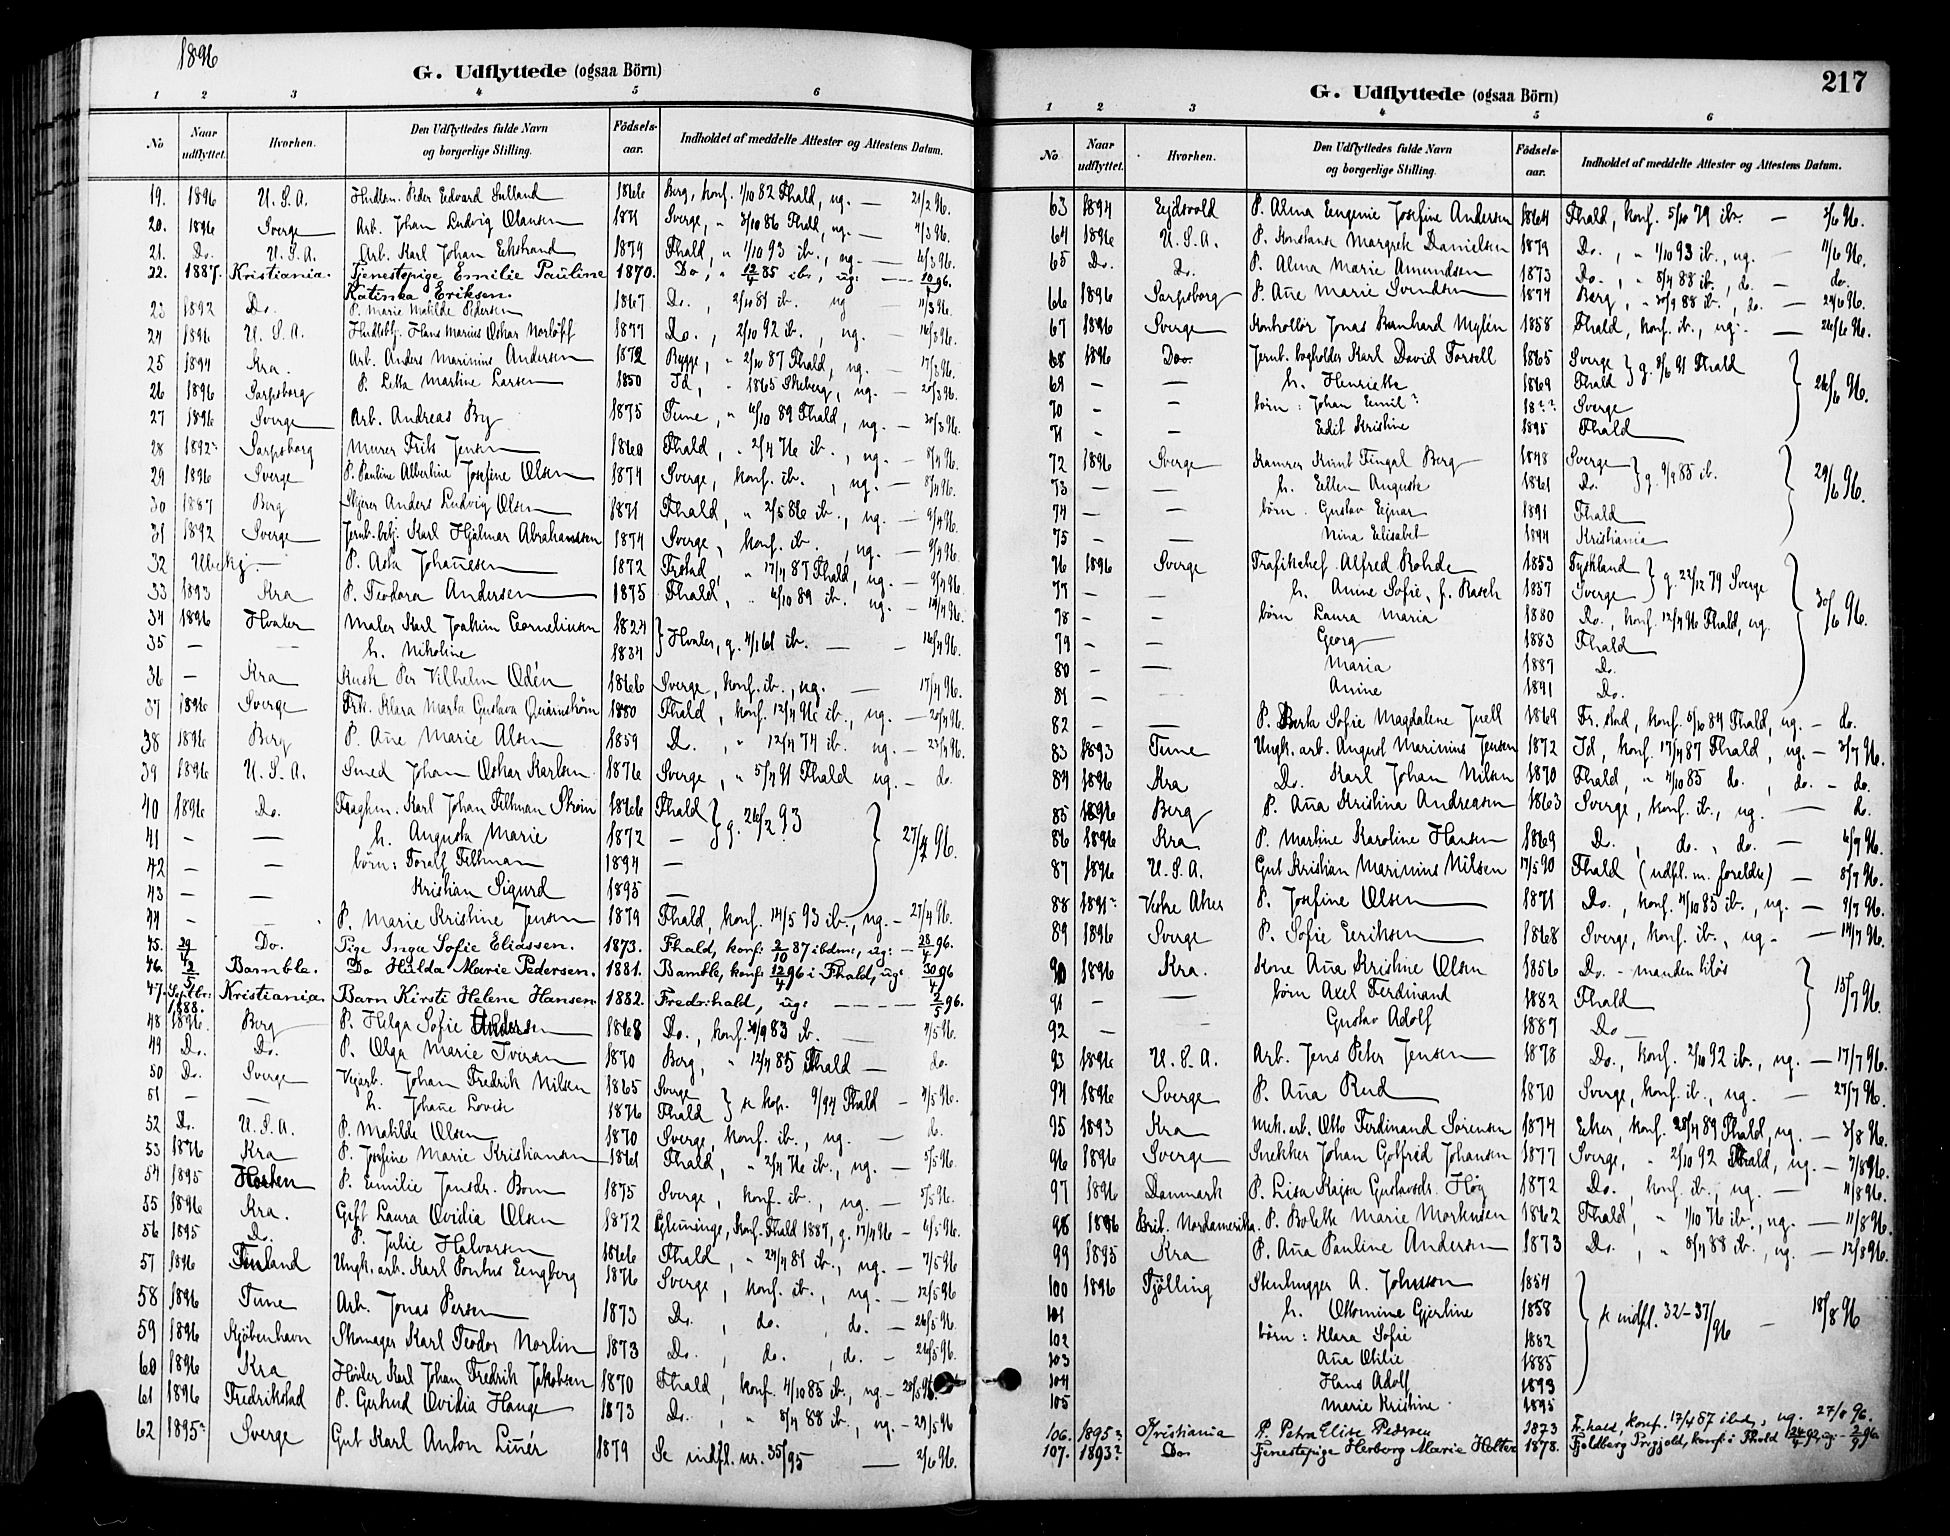 1896
G. Udflyttede (ogsaa Börn)
1 2 3 4 5 6
No Naar udflyttet. Hvorhen. Den Udflyttedes fulde Navn og borgerlige Stilling. Födsels-aar. Indholdet af meddelte Attester og Attestens Datum.
19. 1896 U.S.A. Peder Edvard 1866 Berg, konf. 1/10 82 Fhald, ug. — 21/2 96.
20. 1896 Sverge Arb. Johan Ludvig Olausen 1871 Sverge, " 3/10 86 Fhald, ug. — 4/3 96.
21. Do. U.S.A. Arb. Karl Johan Ekstrand 1879 Fhald, " 1/10 93 ib., ug. — 6/3 96.
22. 1887. Kristiania. Tjenestepige Emilie Pauline Katinka Eriksen. 1870. Do, " 12/4 85 ib., ug: — 10/3 96.
23 1892 Do. P. Marie Matilde Pedersen 1867 Do., 2/10 81 ib. ug 11/3 96.
24 1896 U.S.A. Hans Marius Oskar Norløff 1877 Do., 2/10 92 ib., ug. 16/3 96.
25 1894 Kra. Arb. Anders Marinius Andersen 1872 Bygge, " 2/10 87 Fhald, ug. — 17/3 96.
26 1896 Sarpsborg P. Letta Martine Larsen 1850 Id, " 1865 Skeberg, ug. — 20/3 96.
27 1896 Sverge Arb. Andreas By 1875 Tune, " 6/10 89 Fhald, ug. — 30/3 96.
28 1892? Sarpsborg Murer Frits Jensen 1860 Fhald, " 2/4 76 ib., ug. — 8/4 96.
29 1896 Sverge P. Pauline Albertine Josefine Olsen 1874 Sverge, konf. ib., ug. — 8/4 96.
30 1887 Berg Anders Ludvig Olsen 1871 Fhald, " 2/5 86 ib., ug. — 9/4 96.
31 1892 Sverge Jernb.betj. Karl Hjalmar Abrahamssen 1874 Sverge, konf. ib., ug. — 9/4 96.
32 Ubekj. — P. Asta Johañesen 1872 Frstad, " 17/4 87 Fhald, ug. — 9/4 96.
33 1893 Kra P. Teodora Andersen 1875 Fhald, " 6/10 89 ib. ug. — 14/4 96.
34 1896 Hvaler Maler Karl Joakim Cornelinsen 1824 } Hvaler, g. 4/1 61 ib. — 16/4 96.
35 — h. Nikoline 1834
36 — Kra Kusk Per Vilhelm Odén 1866 Sverge, konf. ib., ug. — 17/4 96.
37 1896 Sverge Frk. Klara Marta Gustava Qvarnström 1880 Fhald, konf. 12/4 96 ib., ug. — 20/4 96.
38 1896 Berg P. Añe Marie Alsen 1859 Do., " 12/4 74 ib. ug. — 23/4 96.
39 1896 U.S.A. Smed Johan Oskar Karlsen 1876 Sverge, " 5/4 91 Fhald ug. — do.
40 1896 Do. Karl Johan Tellman 1866 Fhald } g. 26/2 93 } 27/4 96.
41 — — h. Augusta Marie 1872 —
42 — — börn: Toralf Tellman 1894 —
43 — — Kristian Sigurd 1895 —
44 — — P. Marie Kristine Jensen 1879 Fhald, konf. 14/5 93 ib., ug. — 27/4 96.
45. 29/4 Do. Pige Inga Sofie Eliassen. 1873. Fhald, konf. 2/10 87 ibdm., ug: — 28/4 96.
46. 2/5 Bamble. Do Hulda Marie Pedersen. 1881. Bamble, konf. 12/4 96 i Fhald, ug: 30/4 96
47. Septbr: 1888. Kristiania. Barn Kirsti Helene Hansen. 1882. Fredr:hald, ug: — 2/5 96.
48 1896. Berg P. Helga Sofie Andersen 1868 Do., konf. 30/9 83 ib. — 4/5 96.
49 Do. Do. P. Olga Marie Iversen 1870 Berg, " 12/4 85 Fhald — do.
50 Do. Sverge Vejarb. Johan Fredrik Nilsen 1865 Sverge } se kop. 9/94 Fhald — 4/5 96.
51 — — h. Johañe Lovise 1876 Fhald
52 Do. U.S.A. P. Matilde Olsen 1870 Sverge, konf. ib., ug. — do.
53 1876 Kra P. Josefine Marie Kristiansen 1861 Fhald, " 2/4 76 ib., ug. — 5/5 96.
54 1895 Horten P. Emilie Jansdr. Bom 1875 Sverge, konf. ib., ug. — 5/5 96.
55 1896 Kra. Gift Laura Ovidia Olsen 1872 Glemminge, konf. Fhald 1887, g. 17/4 96 — 6/5 96.
56 1895 Do. P. Julie Halvorsen 1866 Fhald, " 24/4 81 ib., ug. — 7/5 96
57 1896 Finland Ungk. arb. Karl Pontus Engberg 1876 Sverge, konf. ib., ug. — 12/5 96
58 1896 Tune Arb. Jonas Persen 1873 Do., do., do. — 26/5 96.
59 1896 Kjöbenhavn Skomager Karl Teodor Norlin 1873 Do., do., do. — 26/5 96.
60 1896 Kra Karl Johan Fredrik Jakobsen 1870 Fhald, konf. 4/10 85 ib., ug. — 28/5 96.
61 1896 Fredrikstad P. Gertrud Ovidia Hauge 1873 Do., " 8/4 88 ib., ug. — 29/5 96
62 1895? Sverge Gut Karl Anton Liñér 1879 Se indfl. nr. 35/95 — 2/6 96.
217
G. Udflyttede (ogsaa Börn)
1 2 3 4 5 6
No. Naar udflyttet. Hvorhen. Den Udflyttedes fulde Navn og borgerlige Stilling. Födsels-aar. Indholdet af meddelte Attester og Attestens Datum.
63 1894 Eidsvold P. Alma Eugenie Josefine Andersen 1864 Fhald, konf. 5/10 79 ib. — 3/6 96.
64 1896 U.S.A. P. Konstanse Margrete Danielsen 1879 Do., " 1/10 93 ib., ug. — 11/6 96.
65 Do. Do. P. Alma Marie Amundsen 1873 Do., " 8/4 88 ib., do. — do.
66 1896 Sarpsborg P. Añe Marie Svendsen 1874 Berg, " 30/9 88 ib., do. — 24/6 96.
67 1896 Sverge Kontrollör Jonas Bernhard Mylén 1858 Fhald, konf. ib., ug. — 26/6 96.
68 1896 Do. Jernb. bogholder Karl David Forsell 1865 Sverge } g. 8/6 91 Fhald } 26/6 96.
69 — — h. Henriette 1869 Fhald
70 — — börn: Johan Emil? 18?? Sverge
71 — — Edit Kristine 1895 Fhald
72 1896 Sverge Kamrer Knut Fingal Berg 1848 Sverge } g. 9/9 85 ib. } 29/6 96.
73 — — h. Ellen Auguste 1861 Do.
74 — — börn. Gustav Ejnar 1891 Fhald
75 — — Nina Elisabet 1894 Kristiania
76 1896 Sverge Trafikchef Alfred Rohde 1853 Tyskland } g. 22/12 79 Sverge } 30/6 96.
77 — — h. Anine Sofie, f. Rasch 1857 Sverge
78 — — börn Laura Maria 1880 Do., konf. 12/4 96 Fhald, ug.
79 — — Georg 1883 Fhald
80 — — Maria 1887 Do.
81 — — Anine 1891 Do.
82 — — P. Berta Sofie Magdalene Juell 1869 Fr.stad, konf. 5/10 84 Fhald, ug. — do.
83 1893 Tune Ungk. arb. August Marinius Jensen 1872 Id, konf. 17/4 87 Fhald, ug. — 3/7 96.
84 1896 Kra Do. Karl Johan Nilsen 1870 Fhald, " 4/10 85 do., do. — do.
85 1896 Berg P. Aña Kristina Andreasen 1863 Sverge, konf. ib., ug. — do.
86 1896 Kra P. Martine Karoline Hansen 1869 Do., do., do. — 6/7 96.
87 1896 U.S.A. Gut Kristian Marinius Nilsen 17/5 90 Fhald (udfl. m. foreldre) — 8/7 96.
88 1891? Vestre Aker P. Josefine Olsen 1871 Do., konf. 4/10 85 ib., ug. — 9/7 96.
89 1896 Sverge P. Sofie Eriksen 1868 Sverge, konf. ib., ug. — 14/7 96.
90 1896 Kra. Kone Aña Kristine Olsen 1856 Do. — manden } 15/7 96.
91 — — börn Axel Ferdinand 1882 Fhald
92 — — Gustav Adolf 1887 Do
93 1896 U.S.A. Arb. Jens Peter Jensen 1878 Do., konf. 2/10 92 ib., ug. — 17/7 96.
94 1896 Sverge P. Aña Rud 1870 Sverge, konf. ib., ug. — 27/7 96.
95 1893 Kra Mek. arb. Otto Ferdinand Sörensen 1874 Eker, konf. 28/4 89 Fhald, ug. — 3/8 96.
96 1896 Sverge Snekker Johan Gotfred Johansen 1877 Sverge, " 2/10 92 Fhald, ug. — 7/8 96.
97 1896 Danmark P. Lisa Kajsa Gustavsdr. Høg 1872 Do., konf. ib., ug. — 11/8 96.
98 1896 Brit. Nordamerika. P. Bolette Marie Markusen 1862 Fhald, " 1/10 76 ib., ug. — 11/8 96.
99 1895 Kra P. Aña Pauline Andersen 1873 Do., " 8/4 88 ib., ug. — 12/8 96.
100 1896 Tjölling Stenhugger A. Johnsson 1854 } se indfl. 32-37/96 — 18/8 96
101 h. Ottomine Gjertine 1858
102 börn: Klara Sofie 1882
103 Aña Otilie 1885
104 Hans Adolf 1893
105 Marie Kristine 1895
106. 1895? Kristiania P. Petra Elise Pedersen 1873 Fr.hald, konf. 17/4 87 ibd., ug. 27/8 96.
107. 1893? Do. Tjenestepige Herborg Marie Holter 1878. Fjeldberg Prgjeld, konf. i Fhald 24/4 92, ug: — 2/9 96.